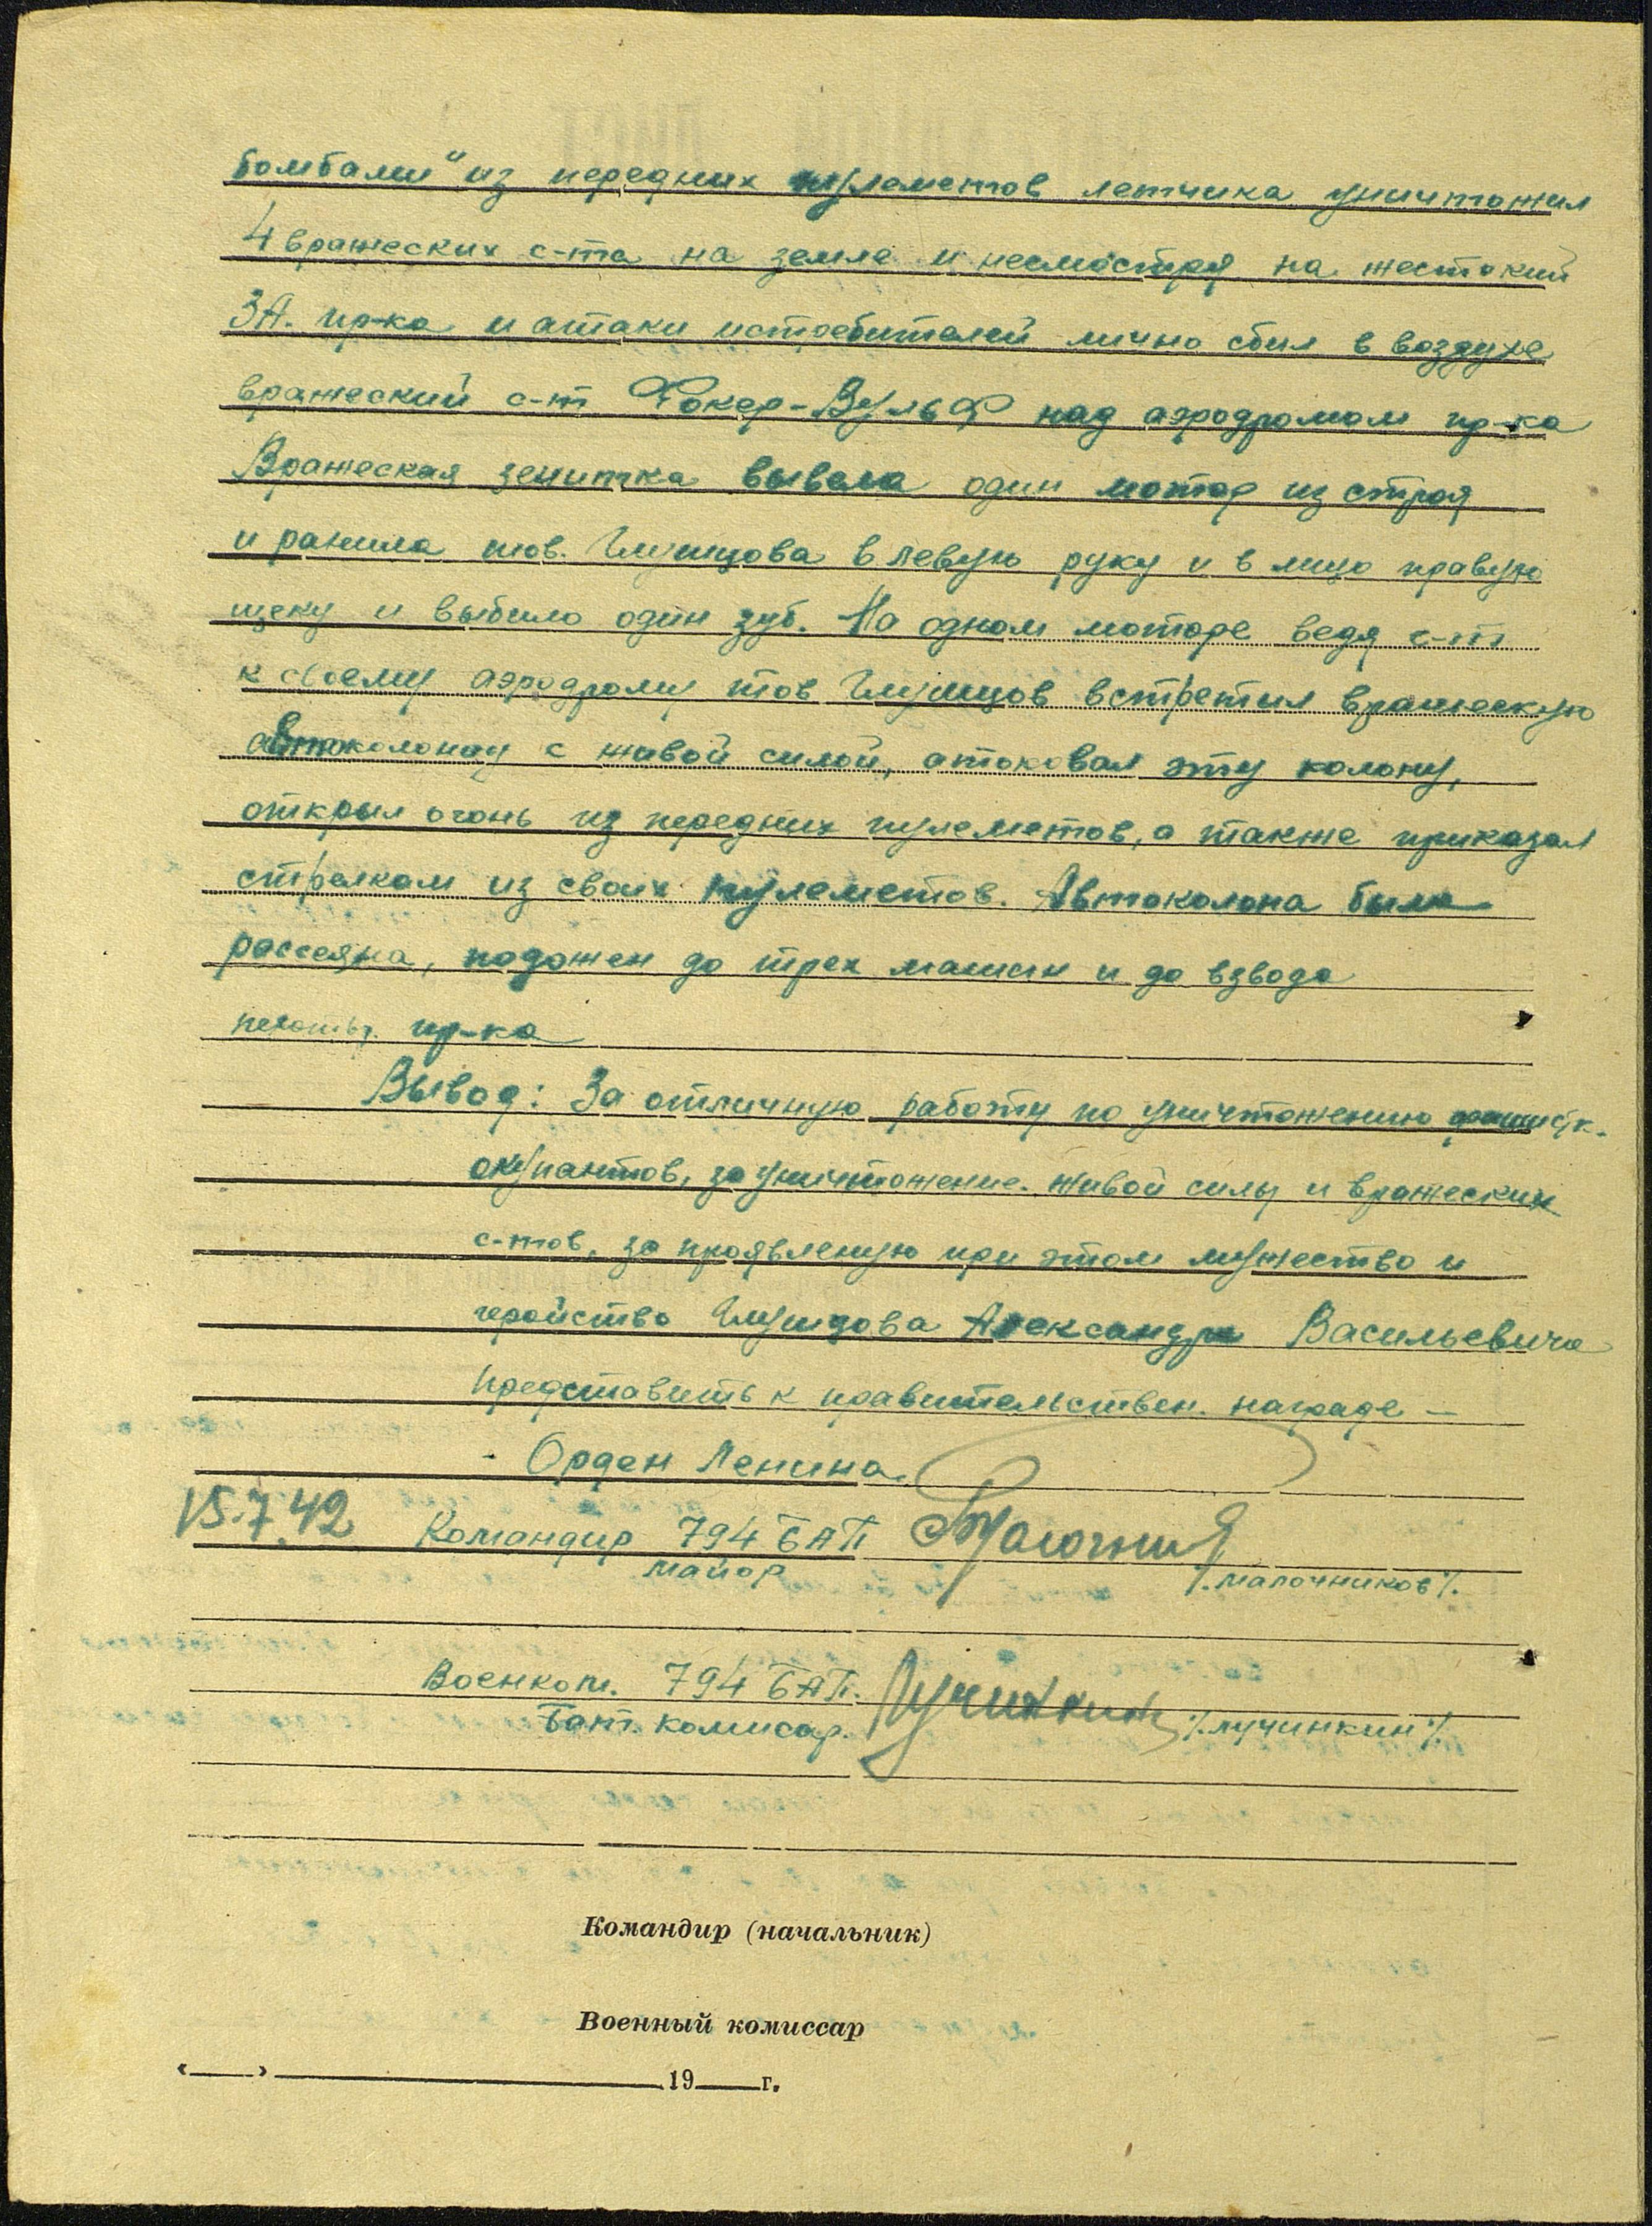 бомбами" из передних пулеметов летчика уничтожил
4 вражеских с-та на земле и несмостря на жестокий
ЗА. пр-ка и атаки истребителей лично сбил в воздухе
вражеский с-т Фокер-Вульф над аэродромом пр-ка
Вражеская зенитка вывела один мотор из строя
и ранила тов. Глушцова в левую руку и в лицо правую
щеку и выбило один зуб. На одном моторе ведя с-т
к своему аэродрому тов Глушцов встретил вражескую
автоколонну с живой силой, атоковал эту колону,
открыл огонь из передних пулеметов, а также приказал
стрелкам из своих пулеметов. Автоколона была
рассеяна, подожен до трех машин и до взвода
пехоты. пр-ка
Вывод: За отличную работу по уничтожению фашистк.
окупантов, за уничтожение. живой силы и вражеских
с-тов, за проявленую при этом мужество и
геройство Александра Васильевича
представить к правительствен. награде -
- Орден Ленина.
15.7.42 Командир 794 БАП
майор /.Малочников/.
Военком. 794 БАП.
Бат. комисар. Лучинкин /.лучинкин/.
Командир (начальник)
Военный комиссар
«___» ___ 19___г.